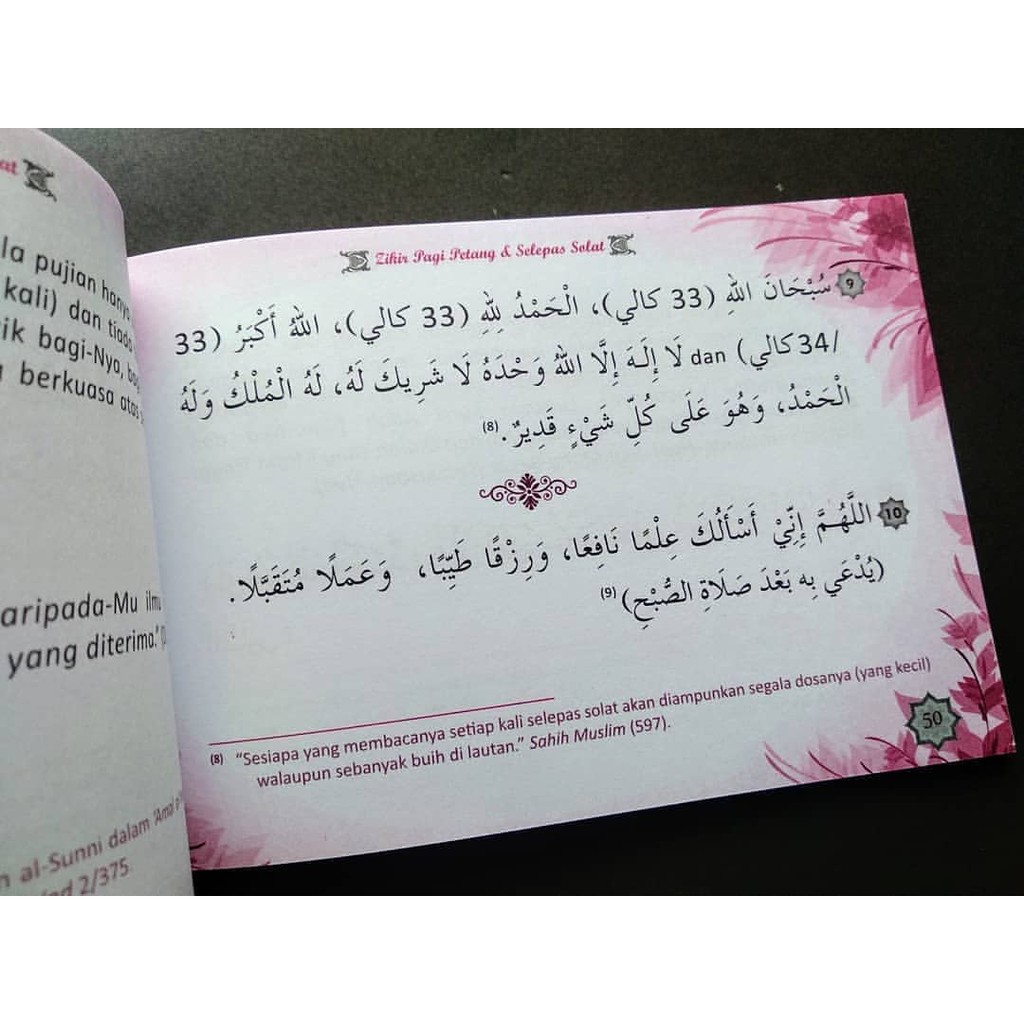 at
la pujian hanya
kali) dan tiada
ik bagi-Nya, bag
berkuasa atas s
aripada-Mu ilmu
yang diterima."
n al-Sunni dalam 'Amal
2/375
Zikir Pagi Petang & Selepas Solat
9 سُبْحَانَ اللهِ (33 كالي)، الْحَمْدُ لِلهِ (33 كالي)، اللهُ أَكْبَرُ (33
/34 كالي) dan لَا إِلَهَ إِلَّا اللهُ وَحْدَهُ لَا شَرِيكَ لَهُ، لَهُ الْمُلْكُ وَلَهُ
الْحَمْدُ، وَهُوَ عَلَى كُلِّ شَيْءٍ قَدِيرٌ. (8)
10 اللَّهُمَّ إِنِّيْ أَسْأَلُكَ عِلْمًا نَافِعًا، وَرِزْقًا طَيِّبًا، وَعَمَلًا مُتَقَبَّلًا.
(يُدْعَي بِه بَعْدَ صَلَاةِ الصُّبْحِ) (9)
(8) "Sesiapa yang membacanya setiap kali selepas solat akan diampunkan segala dosanya (yang kecil)
walaupun sebanyak buih di lautan." Sahih Muslim (597).
50